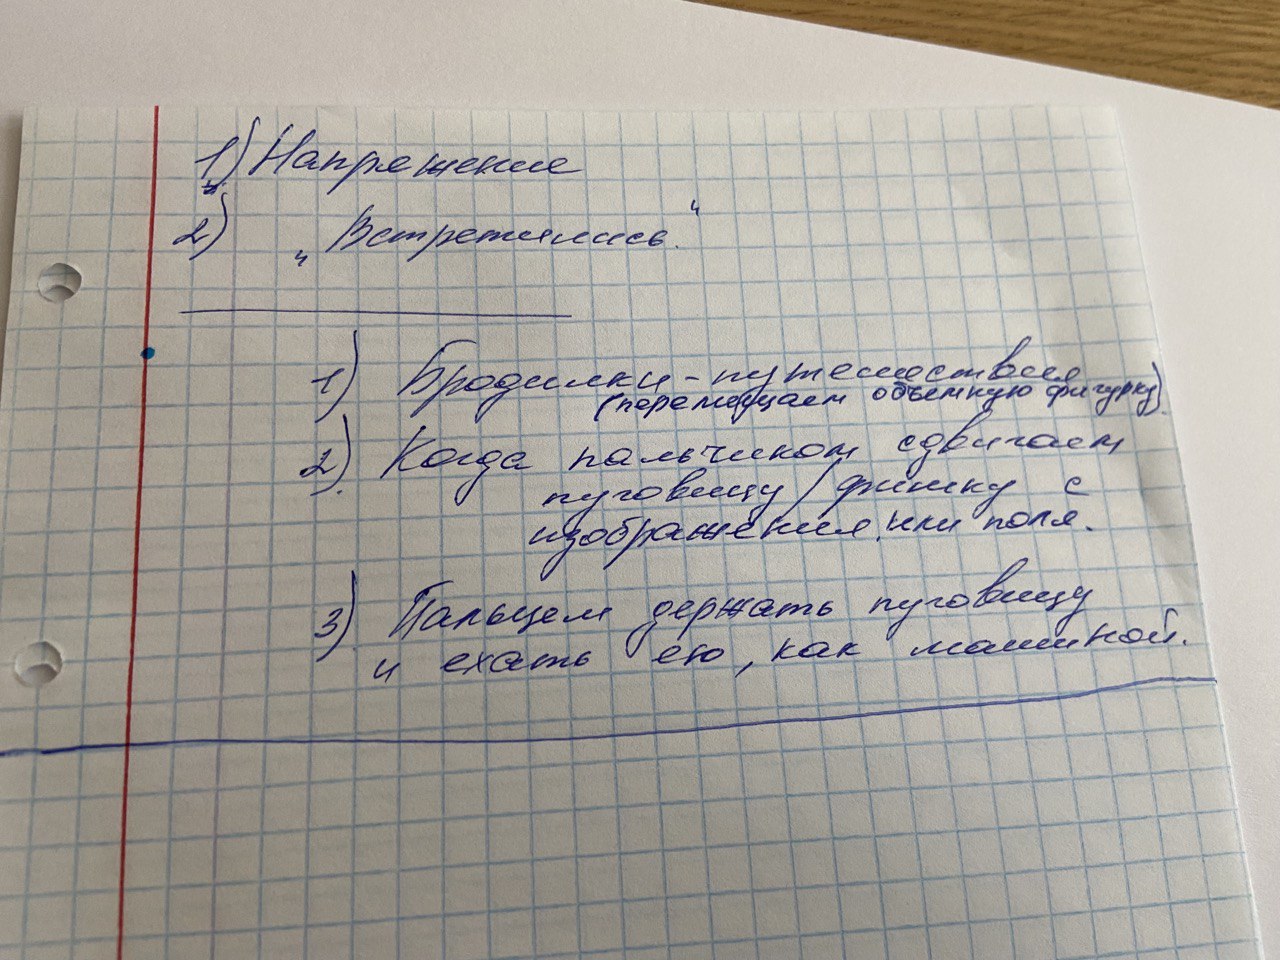 1) Напряжение
2) „Встретились."
1) Бродилки-путешествия
(перемещаем объемную фигурку).
2). Когда пальчиком сдвигаем
пуговицу/фишку с
изображения, или поля.
3). Пальцем держать пуговицу
и ехать ею, как машиной.